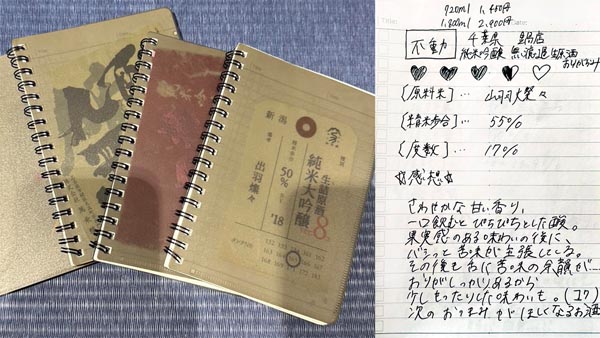 新潟
出羽燦々
50%
生詰原酒
純米大吟醸
8
'18
720ml 1,450円
1,800ml 2,900円
不動 千葉県 鍋店
純米吟醸 無濾過生原酒
おりがらみ
〔原料米〕… 出羽燦々
〔精米歩合〕… 55%
〔度数〕… 17%
☆感想☆
さわやかな甘い香り、
一口飲むとぴちぴちとした酸。
果実感のある味わいの後に、
バシっと苦味が主張してくる。
その後も 苦味の余韻が……
おりがしっかりあるから
少しもったりした味わいも。(コク)
次のおつまみがほしくなるお酒